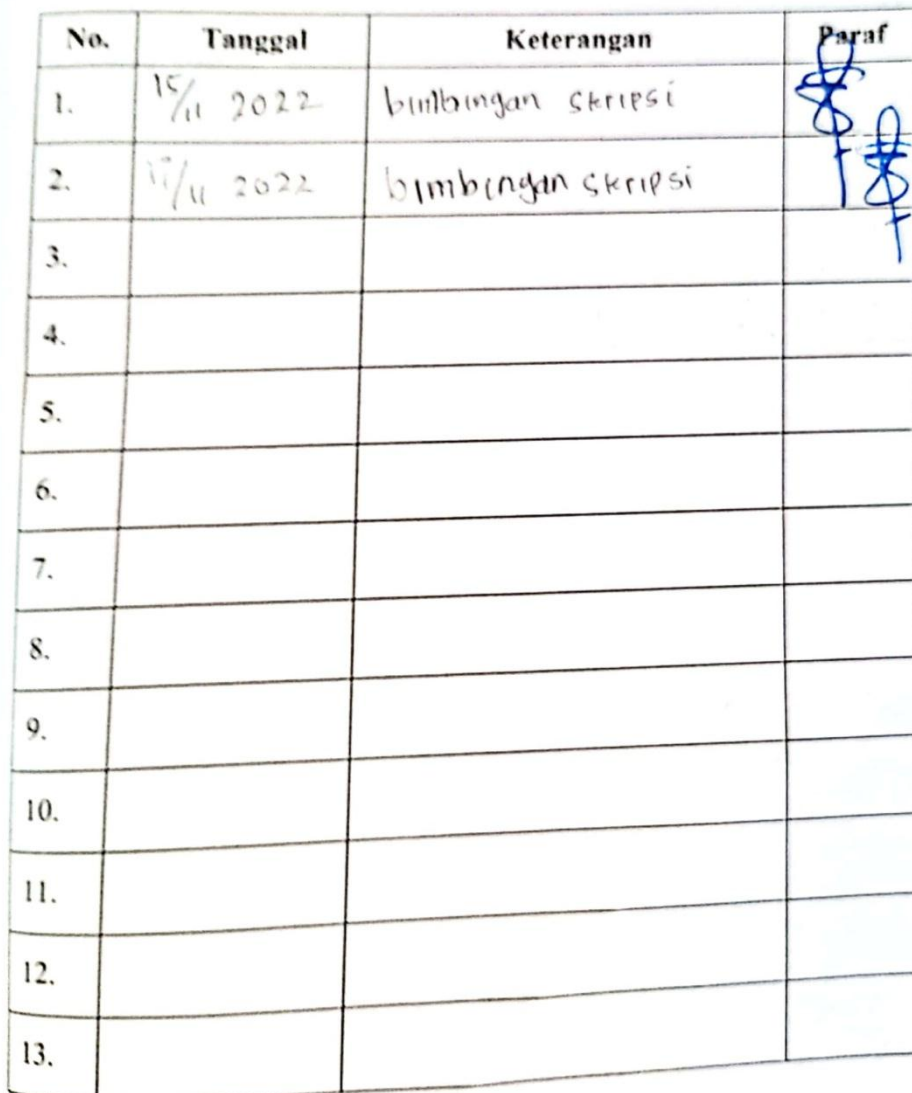 No. Tanggal Keterangan Paraf
1. 15/11 2022 bimbingan skripsi
2. /11 2022 bimbingan skripsi
3.
4.
5.
6.
7.
8.
9.
10.
11.
12.
13.